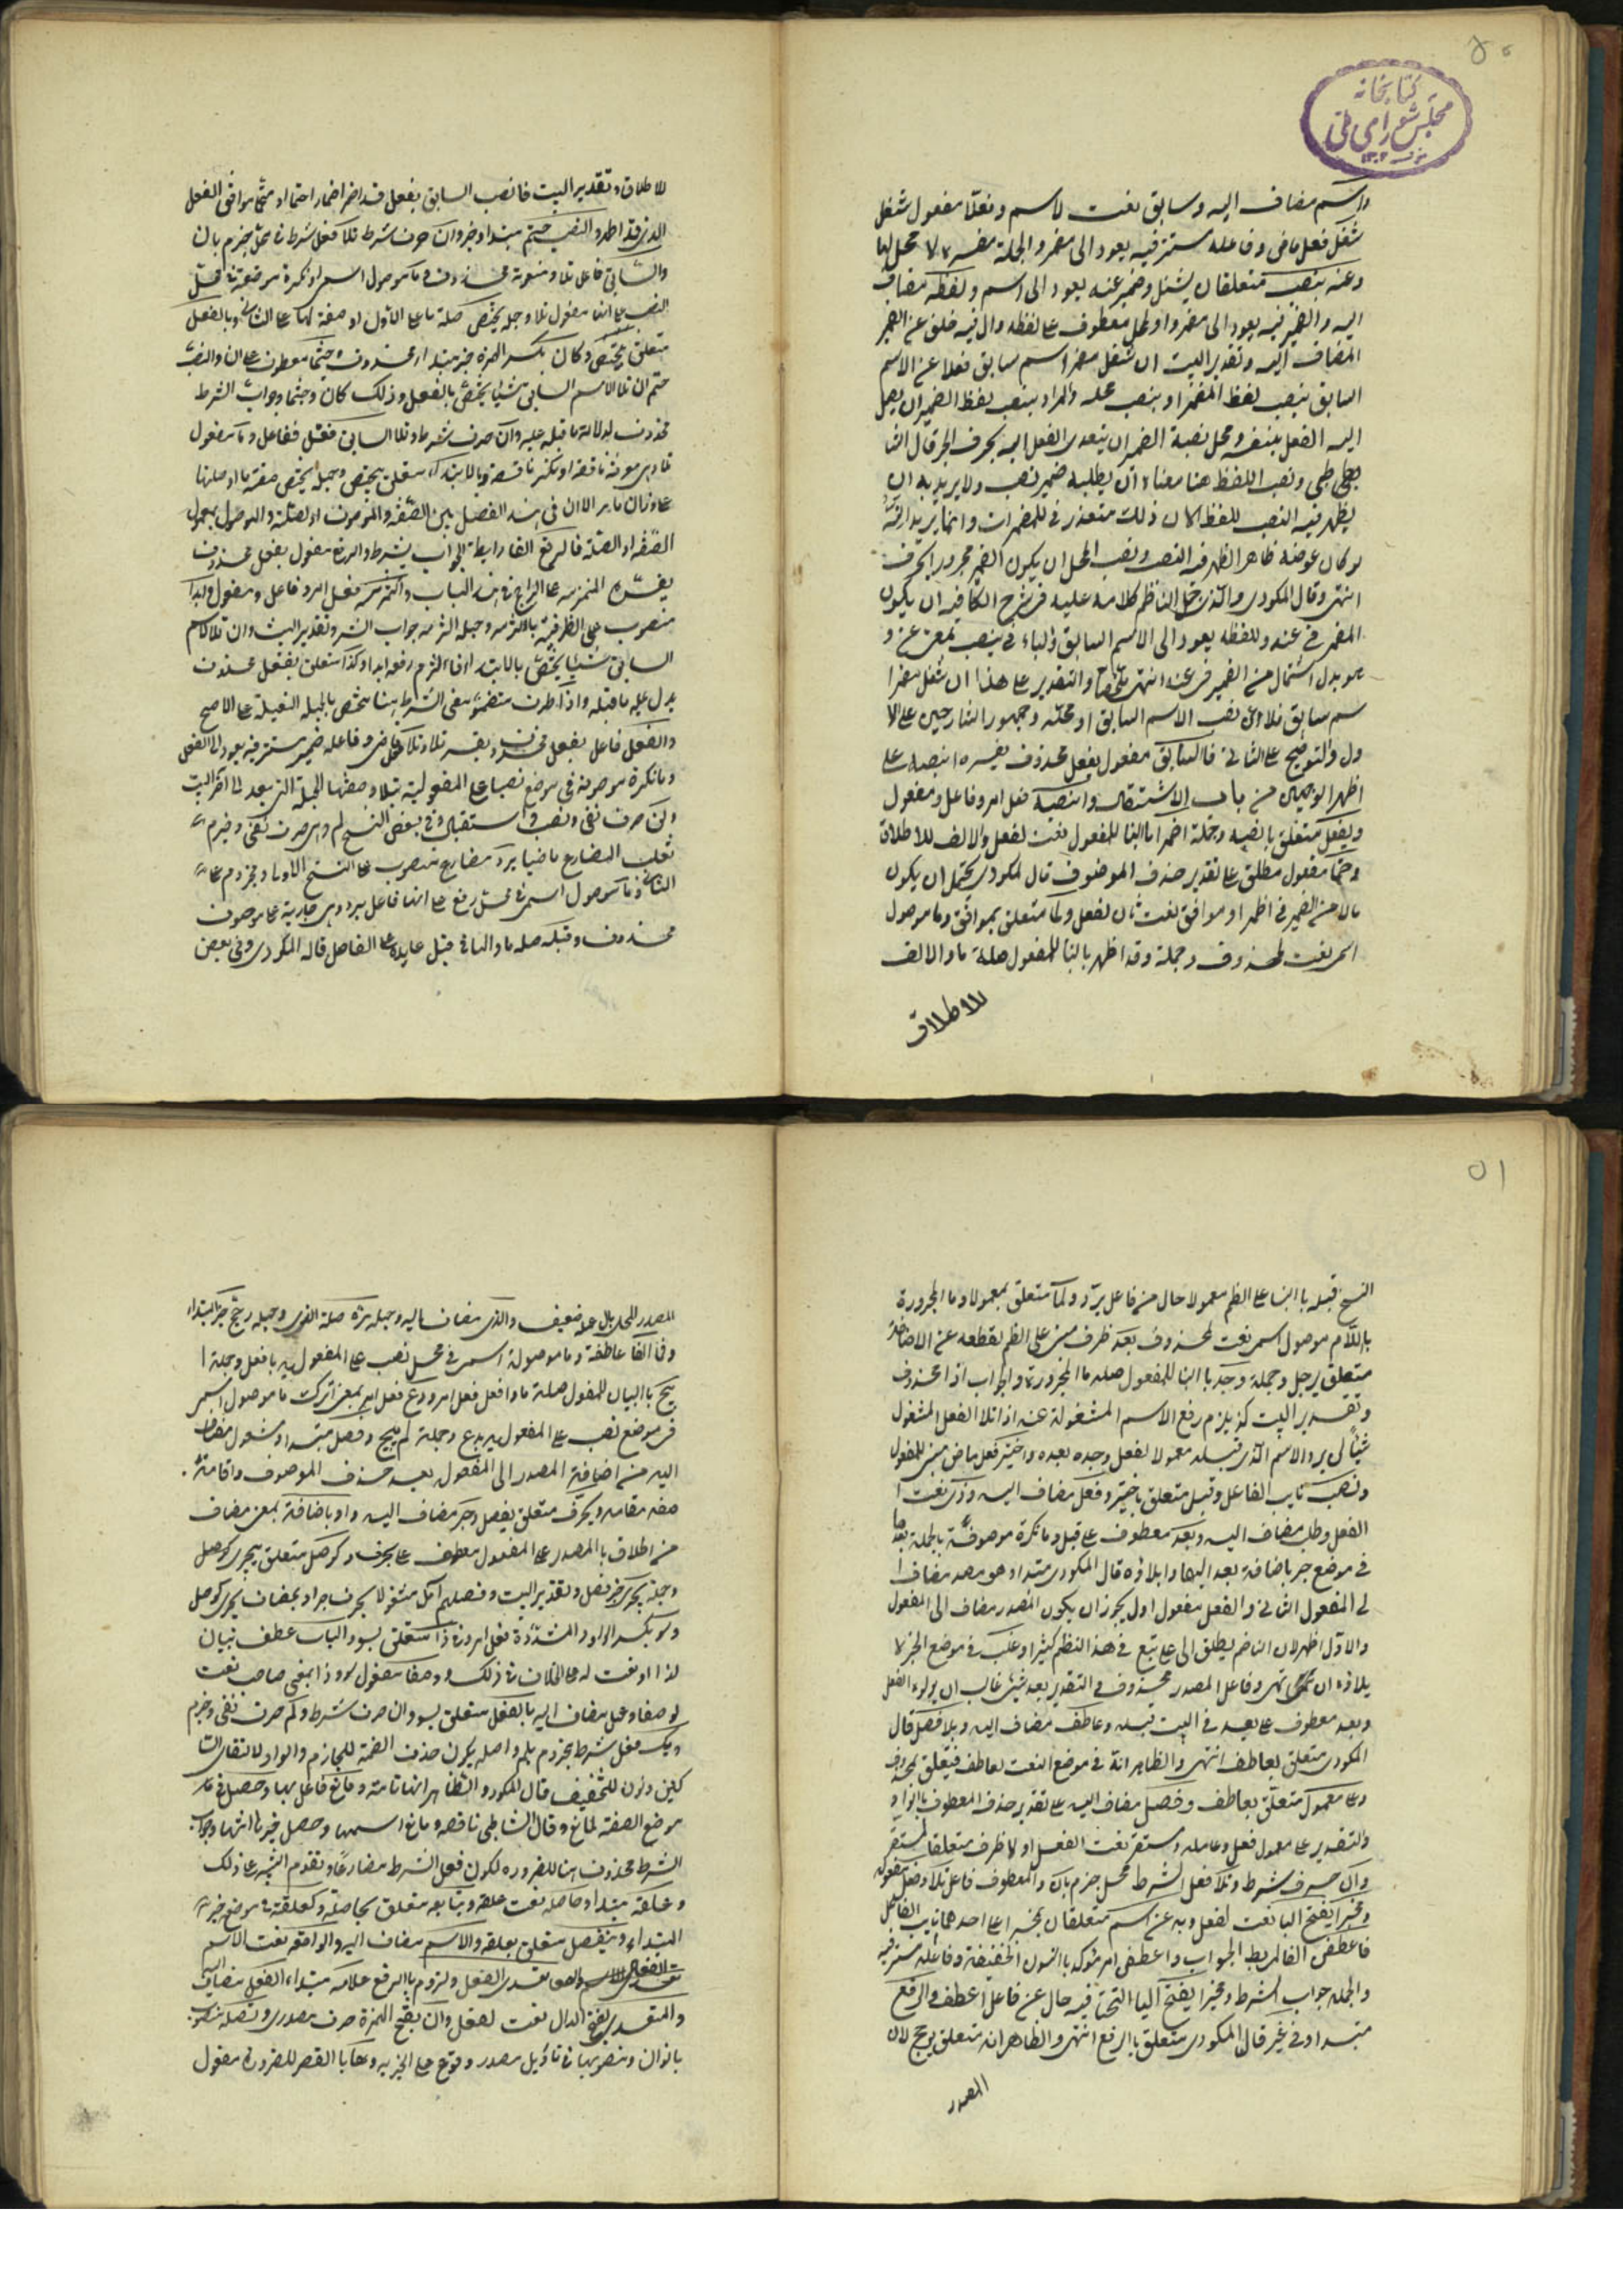 ٥٠
کتابخانه
مجلس شورای ملی
واسم مضاف اليه وسابق نعت لاسم وفعلا مفعول شغل
شغل فعل ماض وفاعله مستتر فيه يعود الى مضمر والجملة مفسرة لا محل لها
وعنه بنصب متعلقان بشغل وضمير عنه يعود الى اسم ولفظه مضاف
اليه والضمير فيه يعود الى مضمر او المحل معطوف على لفظه وال فيه خلف عن الضمير
المضاف اليه وتقدير البيت ان شغل مضمر اسم سابق فعلا عن الاسم
السابق بنصب لفظ المضمر او بنصب محله والمراد بنصب لفظ الضمير ان يصل
اليه الفعل بنفسه ومحل نصبه الضمير ان يتعدى الفعل اليه بحرف الجر قال الشا
طبي ونصب اللفظ هنا معناه ان يطلبه ضمير نصب ولا يريد به ان
يظهر فيه النصب للفظ لان ذلك متعذر في المضمرات وانما يريد انه
لو كان عوضه ظاهر الظهر فيه النصب ونصب المحل ان يكون الضمير مجرورا بحرف
انتهى وقال المكودي والذي حمل الناظم كلامه عليه في شرح الكافيه ان يكون
المضمر في عنه ولفظه يعود الى الاسم السابق والباء في بنصب بمعنى عن و
هو بدل اشتمال من الضمير في عنه انتهى والتقدير على هذا ان شغل مضمر ا
سم سابق فعلا عن نصب الاسم السابق او محله وجمهور الشارحين على الا
ول والتوضيح على الثاني فالسابق مفعول بفعل محذوف يفسره انصبه على
اظهر الوجهين من باب الاشتغال وانصبه فعل امر وفاعل ومفعول
وبفعل متعلق بانصبه وجملة اضمرا بالبنا للمفعول نعت لفعل والالف للاطلاق
وحتما مفعول مطلق على تقدير حذف الموصوف قال المكودي يحتمل ان يكون
حالا من الضمير في اظهرا وموافق نعت ثان لفعل ولما متعلق بموافق وما موصول
اسمي نعت لمحذوف وجملة وقد اظهر بالبنا للمفعول صلة ما والالف
للاطلاق
للاطلاق وتقدير البيت فانصب السابق بفعل قد اضمر اضمارا حتما او متحتما موافق الفعل
الذي قد اظهر والنصب حتم مبتدا وخبر وان حرف شرط تلا فعل شرط في محل جزم بان
والسابق فاعل تلا ومنعوته محذوف وما موصول اسمي او نكرة موصوفة في محل
النصب على انها مفعول تلا وجملة يختص صلة ما على الاول او صفة لها على الثاني وبالفعل
متعلق بيختص وكان بكسر الهمزة خبر مبتدا محذوف وحيثما معطوف على ان والنصب
حتم ان تلا الاسم السابق شيئا يختص بالفعل وذلك كان وحيثما وجواب الشرط
محذوف لدلالة ما قبله عليه وان حرف شرط وتلا السابق فعل ففاعل وما مفعول
تلا وهي معرفة ناقصة او نكرة ناقصة وبالابتداء متعلق بيختص وجملة يختص صفة ما او صلتها
على وزان ما مر الا ان في هذه الفصل بين الصفه والموصوف او الصلة والموصول بمعمول
الصفه او الصلة فالرفع الفا رابطة لجواب الشرط والرفع مفعول بفعل محذوف
يفسره التزمه على الراجح في هذه الباب والتزمه فعل امر وفاعل ومفعول وابدا
منصوب على الظرفية بالتزمه وجملة التزمه جواب الشرط وتقدير البيت وان تلا الاسم
السابق شيئا يختص بالابتداء فالتزم رفعه ابدا وكذا متعلق بفعل محذوف
يدل عليه ما قبله واذا ظرف متضمن معنى الشرط هنا مختص بالجملة الفعلية على الاصح
والفعل فاعل بفعل محذوف يفسره تلا وتلا فعل ماض وفاعله ضمير مستتر فيه يعود الى الفعل
وما نكرة موصوفة في موضع نصبها على المفعولية بتلا وصفتها الجملة التي بعد الى اخر البيت
ولن حرف نفي ونصب واستقبال وفي بعض النسخ لم وهي حرف نفي وجزم
تقلب المضارع ماضيا يرد مضارع منصوب على النسخ الاولى او مجزوم على
الثاني وما موصول اسمي في محل رفع على انها فاعل يرد وهي جارية على موصوف
محذوف وقبله صلة ما والها في قبل عايدة على الفاصل قاله المكودي وفي بعض
٥١
النسخ قبله بالبنا على الضم معمولا حال من فاعل يرد ولما متعلق بمعمولا وما المجرورة
باللام موصول اسمي نعت لمحذوف بعد ظرف مبني على الضم لقطعه عن الاضافة
متعلق بوجد وجملة وجد بالبنا للمفعول صلة ما المجرورة وجواب اذا محذوف
وتقدير البيت كذا يلزم رفع الاسم المشغول عنه اذا تلا الفعل المشغول
شيئا لن يرد الاسم الذي قبله معمولا لفعل وجد بعده واختير فعل ماض مبني للمفعول
ونصب نايب الفاعل وقبل متعلق باختير وفعل مضاف اليه وذي نعت ا
لفعل وطلب مضاف اليه وبعد معطوف على قبل وما نكرة موصوفة بالجملة بعدها
في موضع جر باضافة بعد اليها وايلاؤه قال المكودي مبتدا وهو مصدر مضاف ا
لى المفعول الثاني والفعل مفعول اول ويجوز ان يكون المصدر مضاف الى المفعول
والاول اظهر لان الناظم يطلق الى على تبع في هذا النظم كثيرا وغلب في موضع الخبر لا
يلاؤه انتهى وفاعل المصدر محذوف والتقدير بعد شيء غالب ان يولوه الفعل
وبعد معطوف على بعد في البيت قبله وعاطف مضاف اليه وبلا فصل قال
المكودي متعلق بعاطف انتهى والظاهر انه في موضع النعت لعاطف فيتعلق بمحذوف
وعلى معمول متعلق بعاطف وفعل مضاف اليه على تقدير حذف المعطوف بالواو
والتقدير على معمول فعل وعامله ومستقر نعت لفعل اولا ظرف متعلق بمستقر
وان حرف شرط وتلا فعل الشرط محل جزم بان والمعطوف فاعل تلا وفعلا مفعوله
ومخبرا بفتح البا نعت لفعل وبه عن اسم متعلقان بمخبرا على احدهما نايب الفاعل
فاعطفن الفا لربط الجواب واعطفن امر مؤكد بالنون الخفيفة وفاعله مستتر فيه
والجملة جواب الشرط ومخيرا بفتح اليا التحتانيه حال من فاعل اعطف والرفع
مبتدا وفي غير قال المكودي متعلق بالرفع انتهى والظاهر انه متعلق برجح لان
المصدر
المصدر المحلى بال عمله ضعيف والذي مضاف اليه وجملة مر صلة الذي وجملة رجح خبر المبتداء
وفما الفا عاطفة وما موصولة اسمي في محل نصب على المفعولية بافعل وجملة ا
بيح بالبنا للمفعول صلة ما وافعل فعل امر ودع فعل امر بمعنى اترك ما موصول اسمي
في موضع نصب على المفعولية بدع وجملة لم يبح وفصل مبتدا ومشغول مضاف
اليه من اضافة المصدر الى المفعول بعد حذف الموصوف واقامة
صفته مقامه وبحرف متعلق بفصل وجر مضاف اليه واو باضافة بمعنى مضاف
من اطلاق المصدر على المفعول معطوف على بحرف وكوصل متعلق بيجري كوصل
وجملة يجري خبر فصل وتقدير البيت وفصلهم لك مشغولا بحرف جر او بمضاف يجري كوصل
وسو بكسر الواو المشددة فعل امر وفي ذا متعلق بسو والباب عطف بيان
لذا او نعت له على الخلاف في ذلك ووصفا مفعول سو وذا بمعنى صاحب نعت
لوصفا وعمل مضاف اليه بالفعل متعلق بسو وان حرف شرط ولم حرف نفي وجزم
ويك فعل شرط مجزوم بلم واصله يكون حذف الضمة للجازم والواو لالتقاء السا
كنين ونون للتخفيف قال المكودي والظاهر انها تامة ومانع فاعل بها وحصل في
موضع الصفة لمانع وقال الشاطبي ناقصه ومانع اسمها وحصل خبرها انتهى وجواب
الشرط محذوف هنا للضروره لكون فعل الشرط مضارعا وتقدم التنبيه على ذلك
وعلقة مبتدا وحاصله نعت علقة وبتابع متعلق بحاصله وكعلقة في موضع خبر
المبتداء وبنفس متعلق بعلقة والاسم مضاف اليه والواقع نعت الاسم
تعدي الفعل ولزوم بالرفع علامة مبتداء الفعل مضاف
والمتعدي بفتح الدال نعت لفعل وان بفتح الهمزة حرف مصدري وتصل منصوب
بان وان ومنصوبها في تاويل مصدر وفوع على الخبريه وها بالقصر للضرورة مفعول